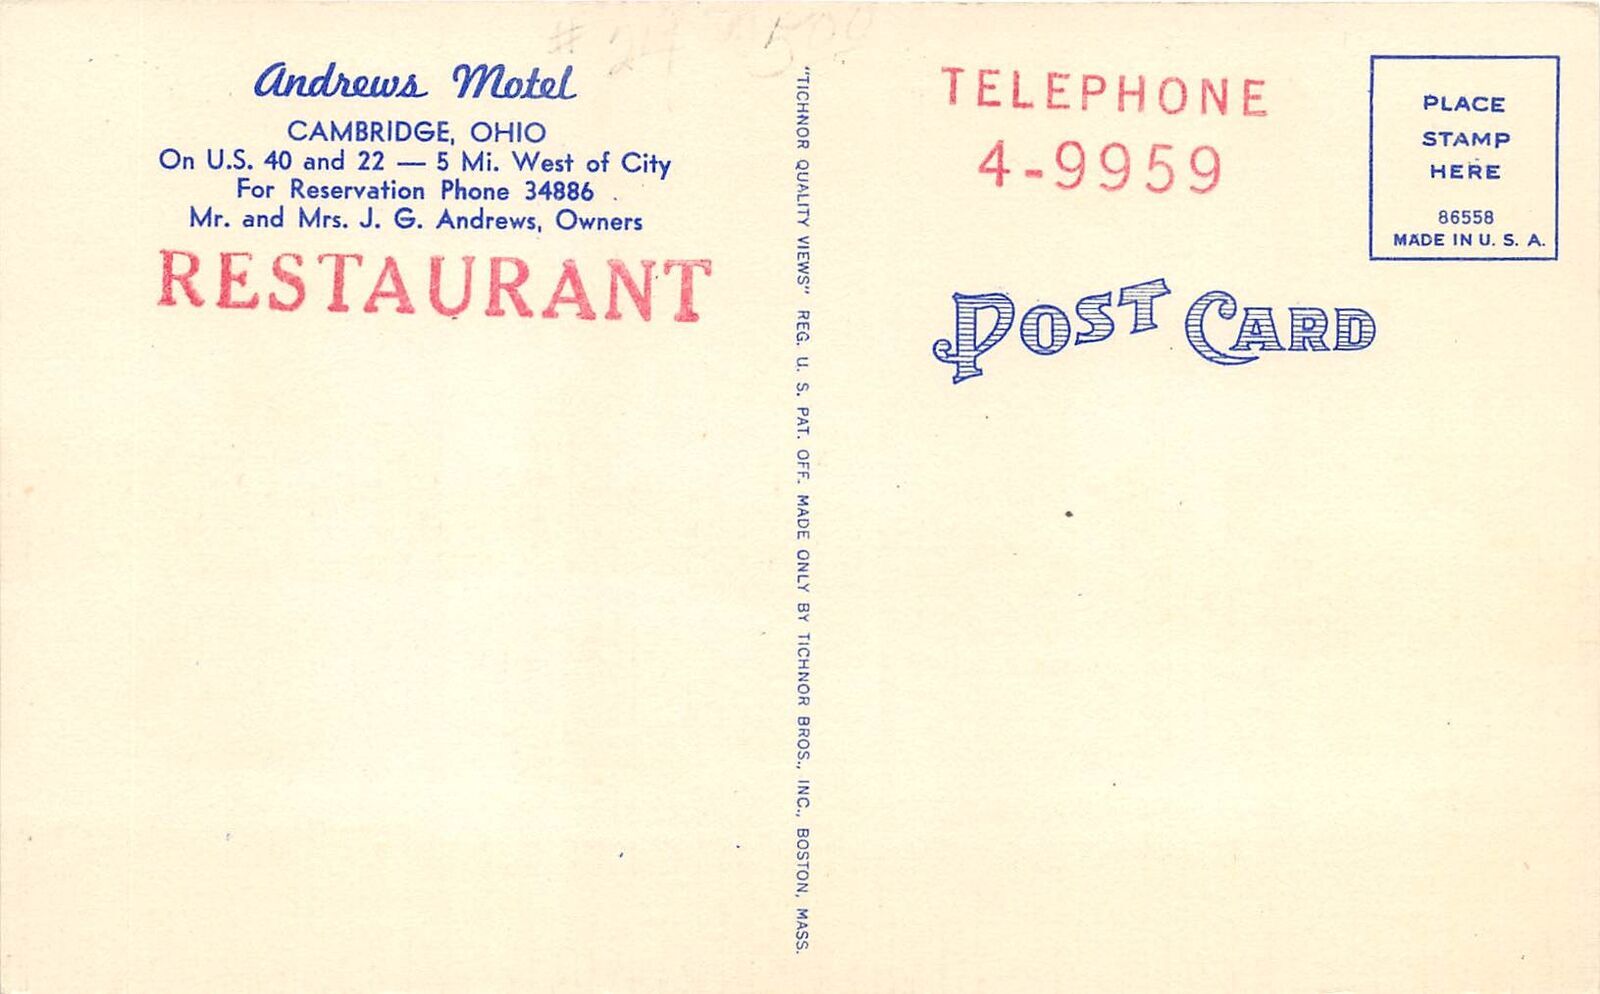 Andrews Motel
CAMBRIDGE, OHIO
On U.S. 40 and 22 — 5 Mi. West of City
For Reservation Phone 34886
Mr. and Mrs. J. G. Andrews, Owners
RESTAURANT
"TICHNOR QUALITY VIEWS" REG. U. S. PAT. OFF. MADE ONLY BY TICHNOR BROS., INC., BOSTON, MASS.
TELEPHONE
4-9959
PLACE
STAMP
HERE
86558
MADE IN U. S. A.
POST CARD